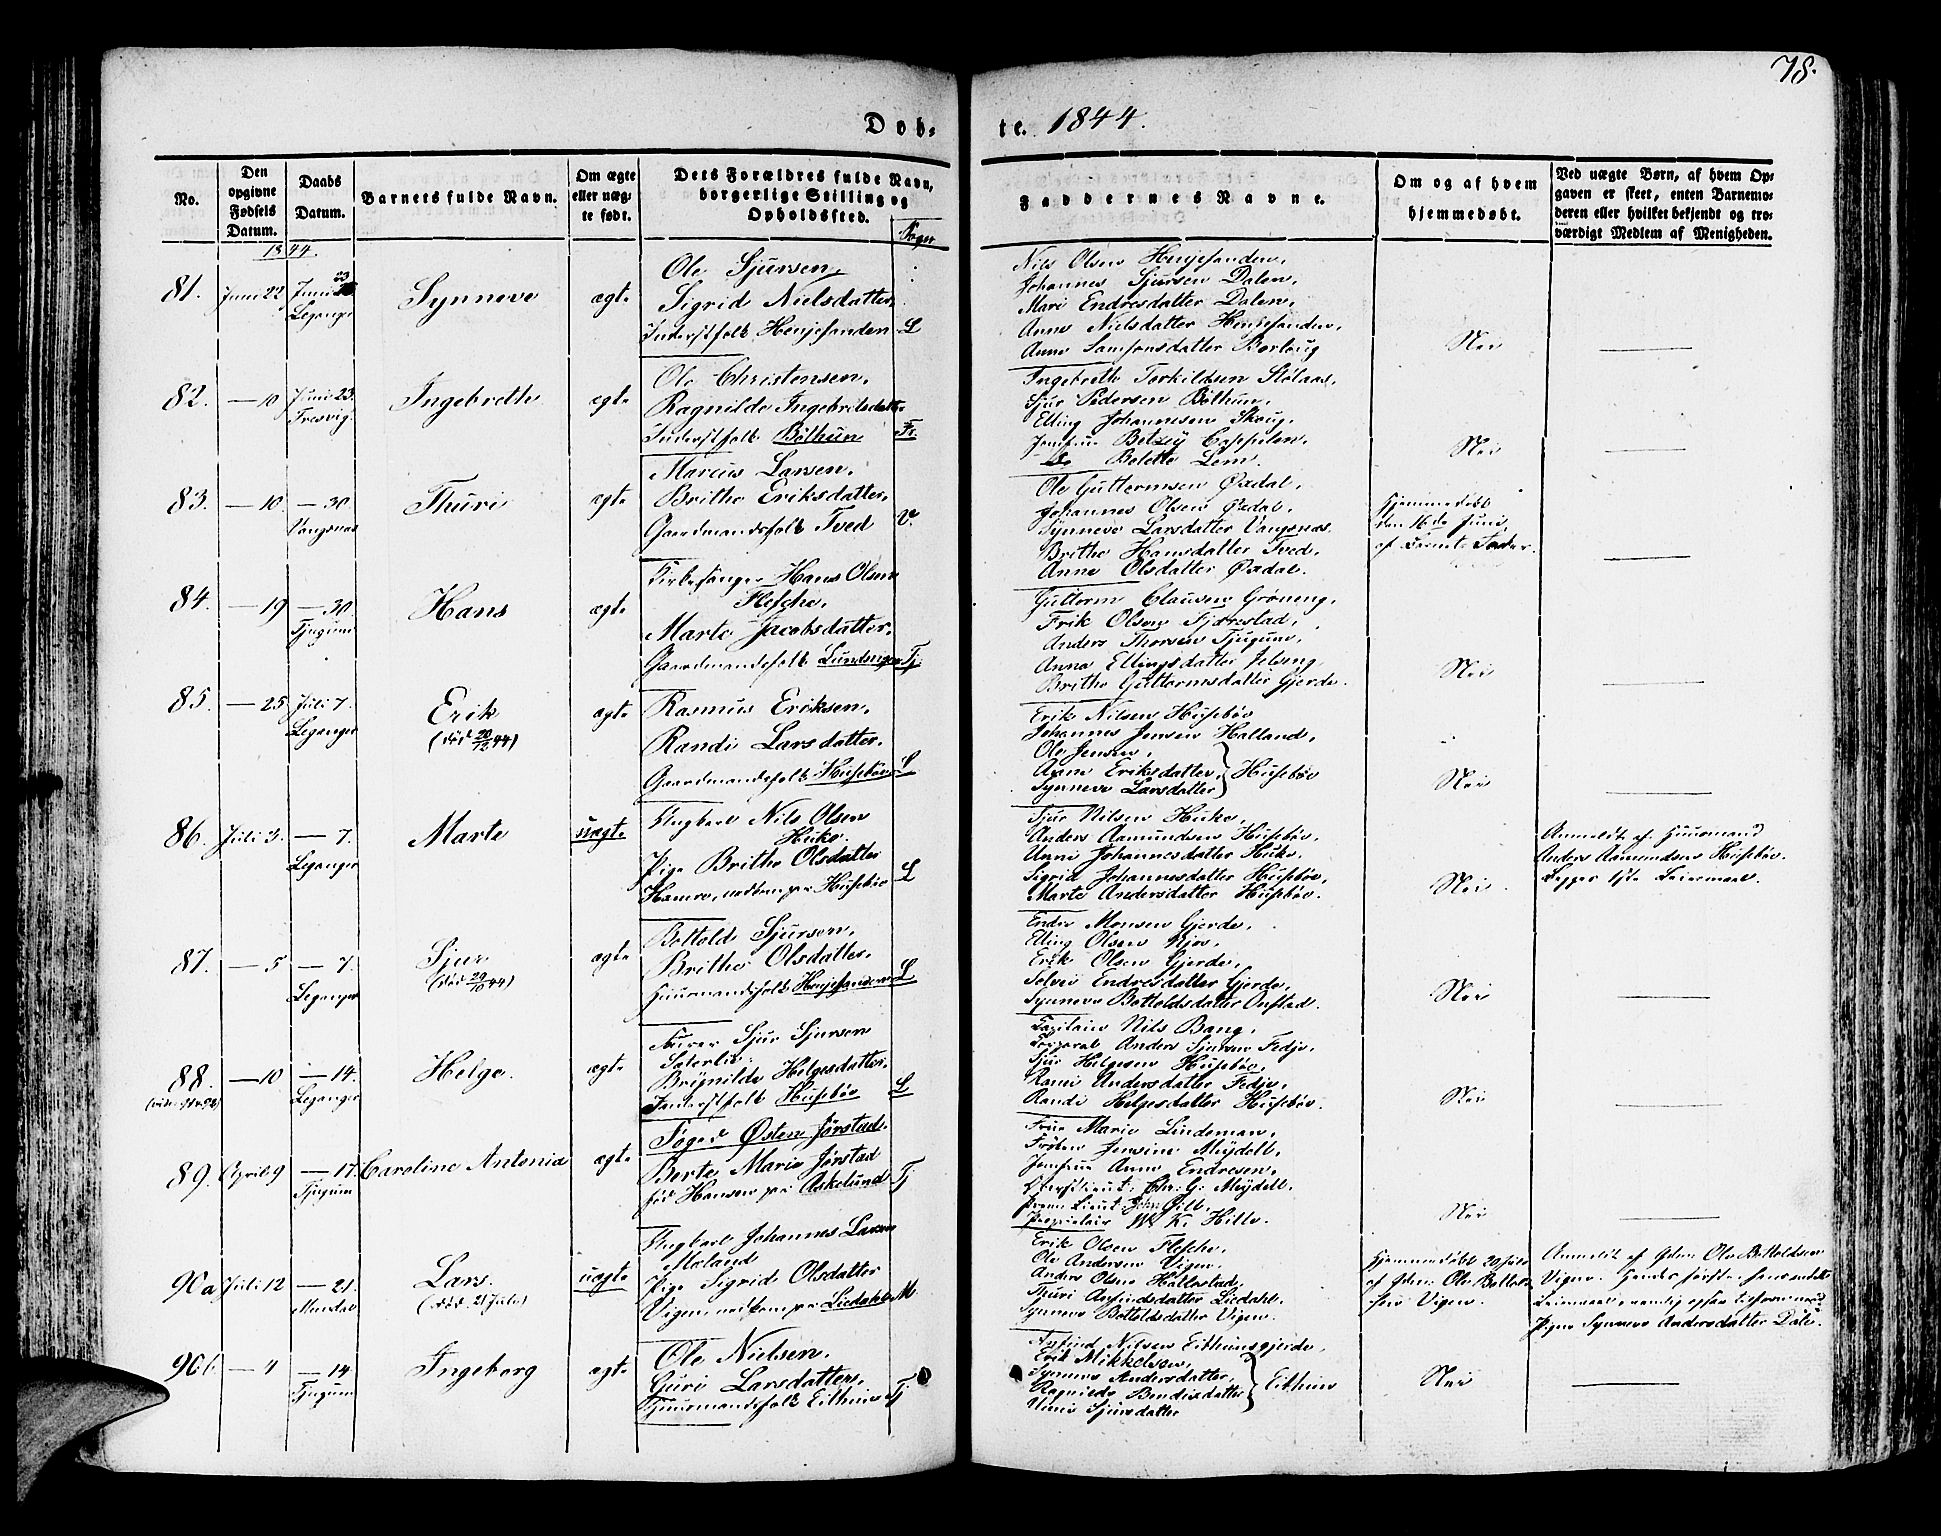 78.
Døb- te. 1844.
No.
Den opgivne Fødsels Datum.
Daabs Datum.
Barnets fulde Navn.
Om ægte eller uægte født.
Dets Forældres fulde Navn, borgerlige Stilling og Opholdssted.
Sogn
Faddernes Navne.
Om og af hvem hjemmedøbt.
Ved uægte Børn, af hvem Opgaven er skeet, enten Barnemoderen eller hvilket bekjendt og troværdigt Medlem af Menigheden.
1844.
81. Juni 22 Juni 23 Leganger Synneve ægte
Ole Sjursen,
Sigrid Nielsdatter,
Inderstfolk Henjesanden L
Nils Olsen Henjesanden,
Johannes Sjursen Dalen,
Mari Endresdatter Dalen,
Anne Nielsdatter Henjesanden,
Anne Samsonsdatter Borlaug
Nei
82. — 10 Juni 23. Fresvig. Ingebreth ægte
Ole Christensen,
Ragnilde Ingebritsdatter
Inderstfolk Bøthun Fr.
Ingebreth Torkildsen Stølaas,
Sjur Pedersen Bøthun,
Elling Johannesen Skoug,
Jomfrue Betzey Cappelen,
do Belette Lem.
Nei
83. — 10. — 30 Vangsnæs Thuri ægte
Marcus Larsen,
Brithe Eriksdatter,
Gaardmandsfolk Tved V.
Ole Guttormsen Øxdal,
Johannes Olsen Øxdal,
Synneve Larsdatter Vangsnæs.
Brithe Hansdatter Tved,
Anne Olsdatter Øxdal.
Hjemmedøbt
den 16de Juni
af Barnets Fader.
84. — 19 — 30. Tjugum Hans ægte
Kirkesanger Hans Olsen
Flesche,
Marte Jacobsdatter,
Gaardmandsfolk Tj.
Guttorm Clausen Grøneng,
Erik Olsen Fjærestad,
Anders Thorsen Tjugum,
Anna Ellingsdatter
Brithe Guttormsdatter Gjerde.
Nei
85. — 25 Juli 7. Leganger Erik ægte
(død 20/12 44)
Rasmus Eriksen,
Randi Larsdatter,
Gaardmandsfolk Husebøe L
Erik Nilsen Husebøe
Johannes Jensen Halland,
Ole Jensen,
Anne Eriksdatter, } Husebøe
Synneve Larsdatter
Nei
86. Juli 3. — 7. Leganger Marte uægte
Ungkarl Nils Olsen
Huke.
Pige Brithe Olsdatter
Hamre, nedkom paa Husebøe L
Sjur Nilsen Huke,
Anders Aamundsen Husebøe,
Unni Johannesdatter Huke,
Sigrid Johannesdatter Husebøe,
Marte Andersdatter Husebøe.
Nei.
Anmeldt af Huusmand
Anders Aamundsen Husebøe.
Begges 1ste Leiermaal.
87. — 5 — 7. Leganger Sjur ægte
(død 29/10 44)
Bottold Sjursen,
Brithe Olsdatter,
Huusmandsfolk Henjesanden L
Endre Monsen Gjerde,
Elling Olsen Njøs,
Erik Olsen Gjerde,
Solvei Endresdatter Gjerde,
Synneve Bottoldsdatter Onstad.
Nei
88. — 10 — 14. Leganger Helge. ægte
Sjur Sjursen
Brynilde Helgesdatter,
Inderstfolk Husebøe L
Capitain Nils Bang,
Corporal Anders Sjursen Fedje,
Sjur Helgesen Husebøe,
Rannei Andersdatter Fedje,
Randi Helgesdatter Husebøe.
Nei
89. April 9 — 17. Tjugum Caroline Antonia ægte
Foged Østen Jørstad,
Berte Marie Jørstad
fød Hansen paa Askelund Tj
Frue Marie Lindeman,
Frøken Jensine Meydell,
Jomfrue Anne Endresen,
Oberstlieut: Chr: G: Meydell,
Prem: Lieut:
Proprietair W. K. Hille.
Nei
90a Juli 12 — 21. Mundal Lars. uægte
(død 21 Juli)
Ungkarl Johannes Larsen
Mæland
Pige Sigrid Olsdatter
Vigen, nedkom paa Liedahl M
Erik Olsen Flesche,
Ole Andersen Vigen,
Anders Olsen Hallestad,
Thuri Anfindsdatter Liedahl,
Synneve Bottoldsdatter Vigen.
Hjemmedøbt 20 Juli
af Gdm: Ole Bottolds-
sen Vigen.
Anmeldt af Gdm: Ole Bottoldsen
Vigen. Hendes første, hans andet
Leiermaal, nemlig
Pigen Synneve Andersdatter Dale.
90b. — 4 — 14 Tjugum Ingeborg ægte
Ole Nielsen,
Guri Larsdatter,
Huusmandsfolk Eithun Tj
Nilsen Eithunsgjerde,
Erik Mikkelsen,
Synneve Andersdatter,
Ragnilde Bendixdatter } Eithun
Unni Sjursdatter
Nei